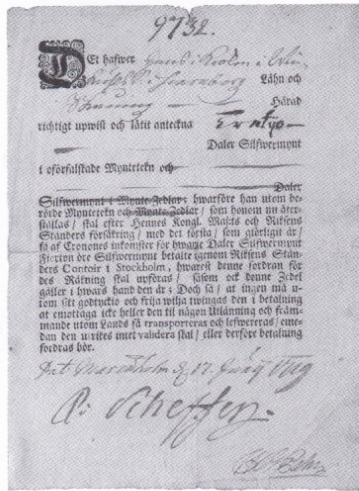 9732.
Et hafwer Hans i Krolon i Win-
Lähn och
Härad
richtigt upwist och låtit anteckna
Daler Silfwermynt
i oförfalskade Myntetekn och
Daler
Silfwermynt i Mynte-Zedlar; hwarföre han utom be-
rörde Myntetekn och Mynte-Zedlar / som honom nu åter-
ställas / skal efter Hennes Kongl. Maj:ts och Riksens
Ständers försäkring / med det första / som giörligit är /
få af Cronones inkomster för hwarje Daler Silfwermynt
Fiorton öre Silfwermynt betalte igenom Riksens Stän-
ders Contoir i Stockholm / hwarest denne fordran för
des Rätning skal upföras / såsom ock denne Zedel
gäller i hwars hand den är; Doch så / at ingen må u-
tom sitt godtyckio och frija wilja twingas den i betalning
at emottaga icke heller den til någon Utlänning och främ-
mande utom Lands så transporteras och lefwereras / eme-
dan den wrikes intet validera skal / eller derföre betalning
fordras bör.
17. Junÿ 1719
P: Scheffer.